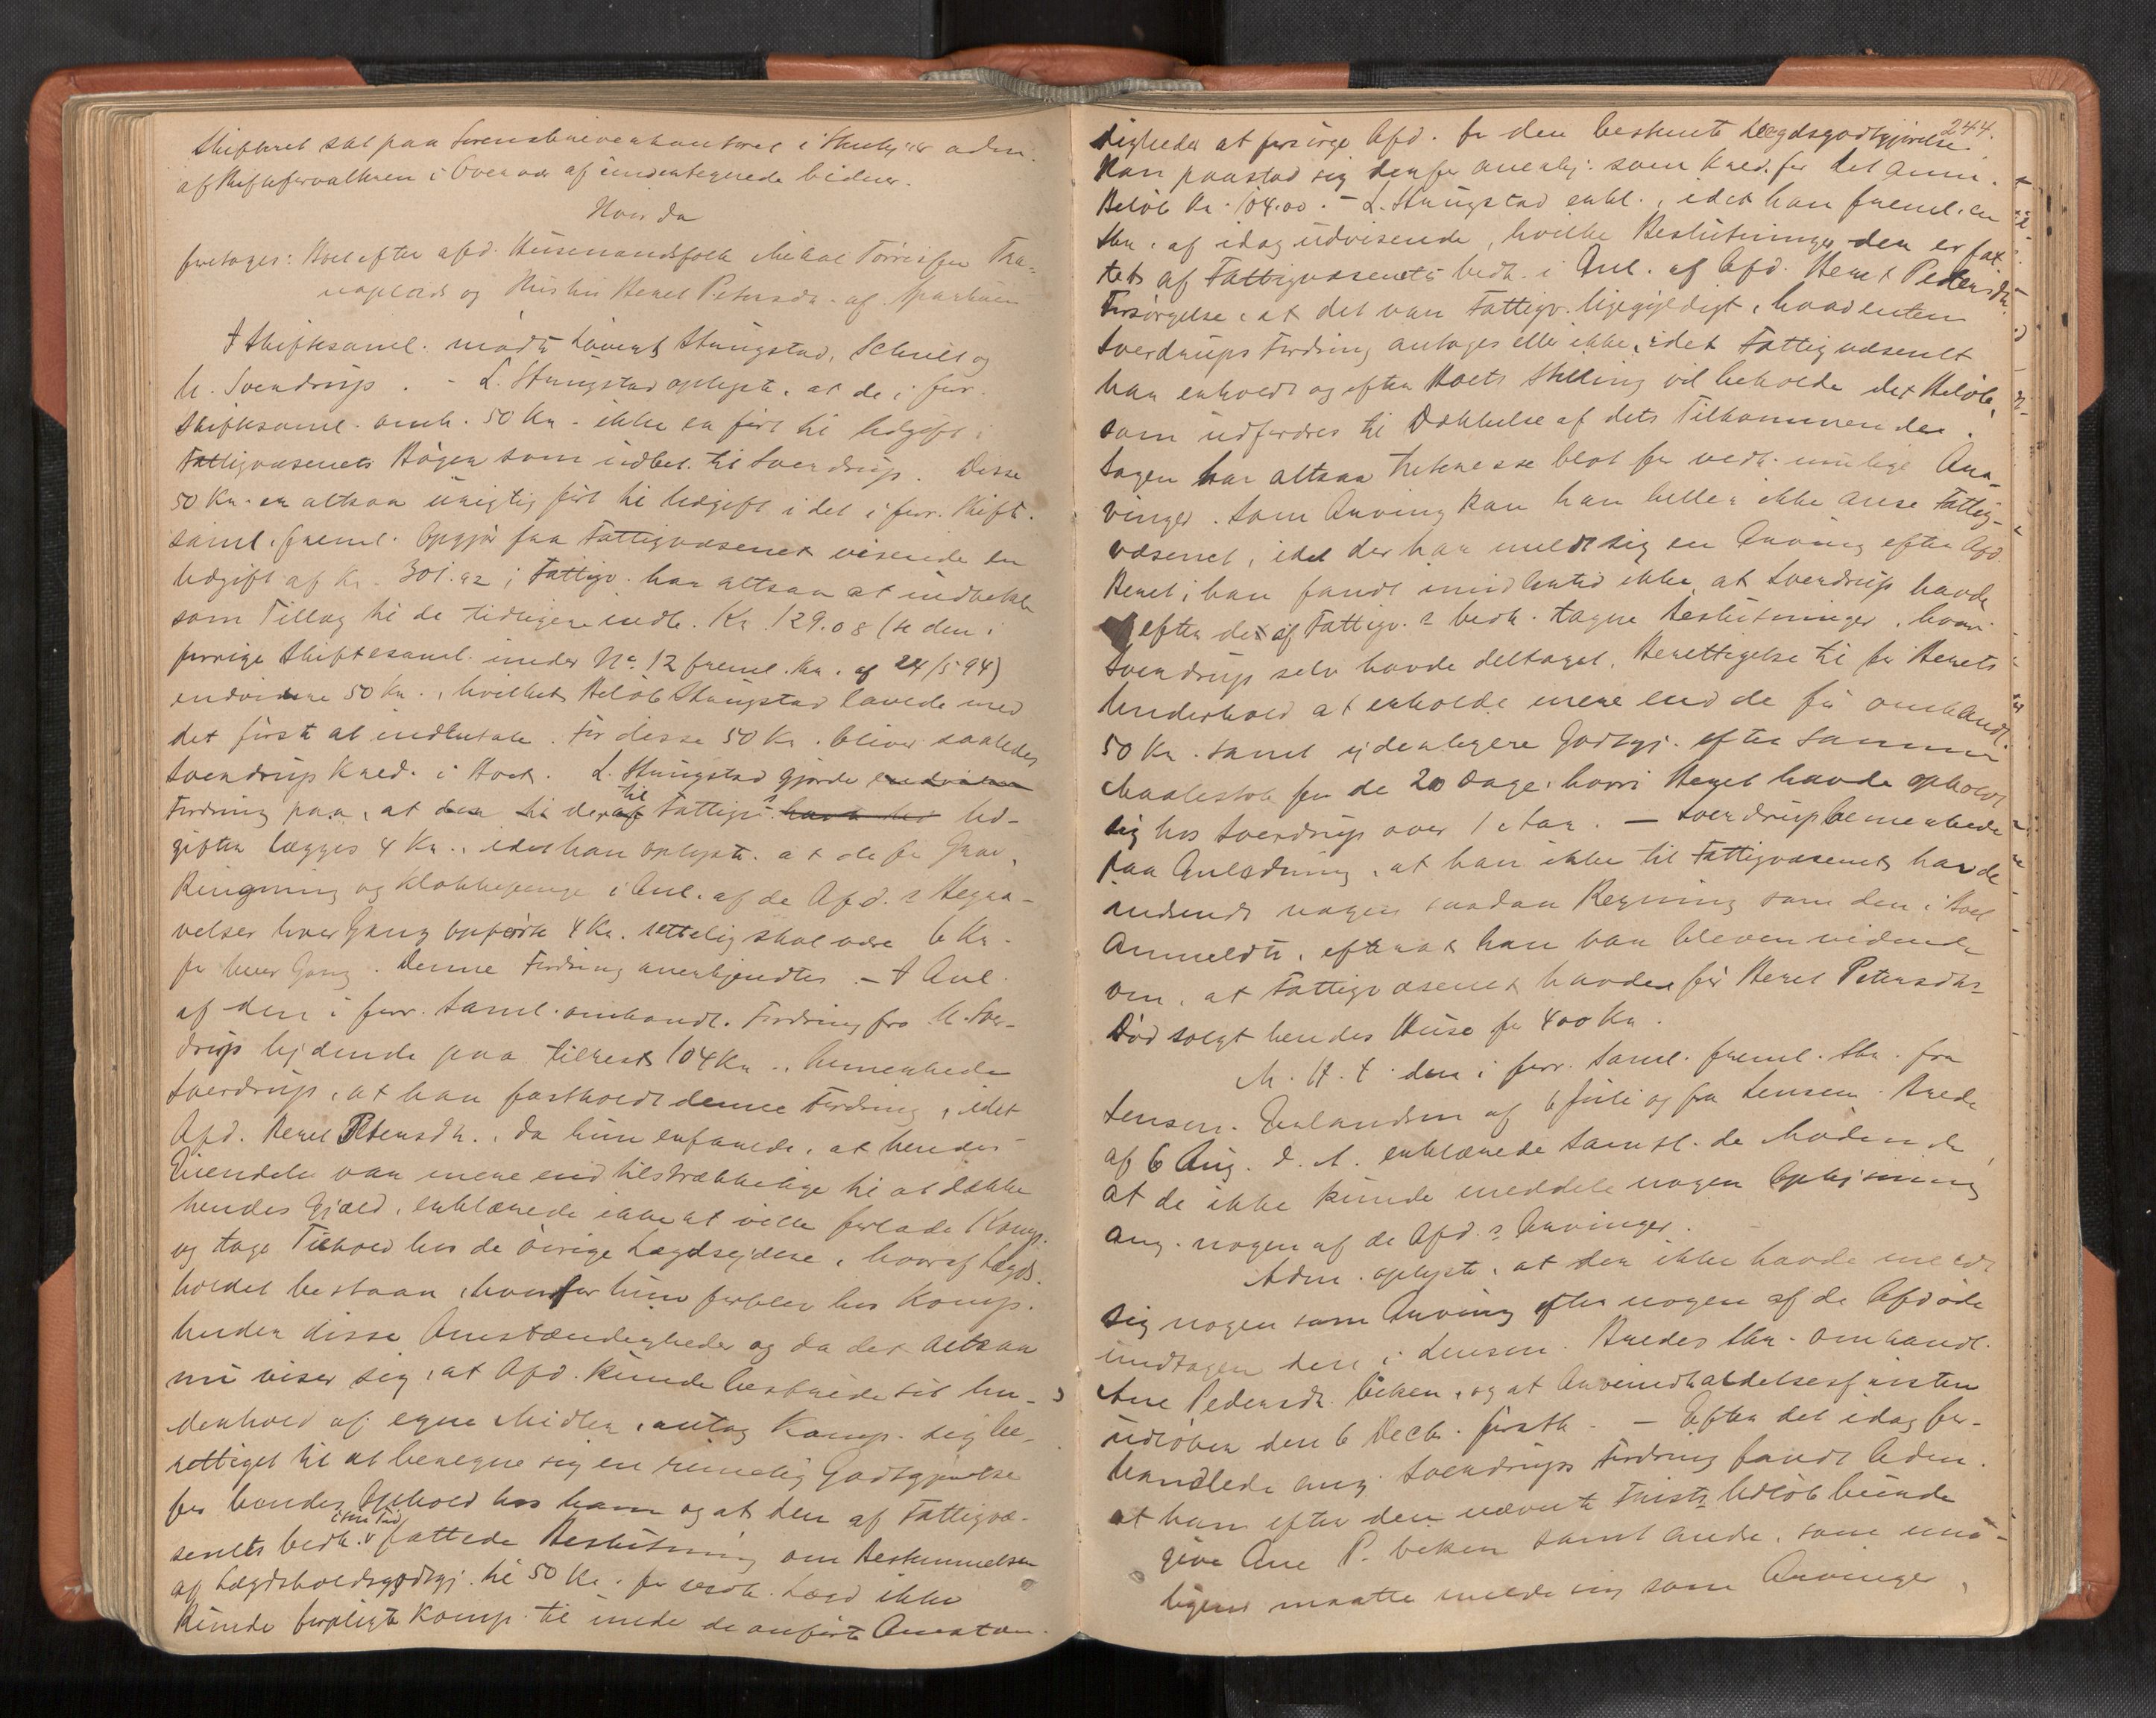 Skifteret sat paa Sorenskriverkontoret i adm.
af Skifteforvalteren i Overvær af undertegnede Vidner.
Hvor da
foretoges: Boet efter afd. Husmandsfolk Mikal Tørrisen
og Hustru Beret Petersdr. af
I Skiftesaml. mødte Stangstad, Schult og
M. Sverdrup. - L. Stangstad oplyste, at de i forr.
Skiftesaml. omh. 50 Kr. ikke er ført til Udgift i
Fattigvæsenets Bøger som udbet. til Sverdrup. Disse
50 Kr. er altsaa urigtig ført til Udgift i det i forr. Skifte-
saml. freml. Opgjør fra Fattigvæsenet visende en
Udgift af Kr. 301.92; Fattigv. har altsaa at indbetale
som Tillæg til de tidligere indb. Kr. 129.08 (se den i
forrige Skiftesaml. under No. 12 freml. Skr. af 24/5 94)
endvidere 50 Kr., hvilket Beløb Stangstad lavede med
det første at indbetale. For disse 50 Kr. bliver saaledes
Sverdrup Kred. i Boet. L. Stangstad gjorde endvidere
Fordring paa, at der til de af til Fattigv.s havte Ud-
gifter lægges 4 Kr., idet han oplyste, at de for Grav,
Ringning og Klokkepenge i Anl. af de Afd.s Begra-
velser hver Gang opførte 4 Kr. rettelig skal være 6 Kr.
for hver Gang. Denne Fordring anerkjendtes. - I Anl.
af den i forr. Saml. omhandl. Fordring fra M. Sver-
drup lydende paa tilrest 104 Kr., bemerkede
Sverdrup, at han fastholdt denne Fordring, idet
Afd. Beret Petersdr., da hun erfarede, at hendes
Eiendele var mere end tilstrækkelige til at dække
hendes Gjæld, erklærede ikke at ville forlade Komp.
og tage Tilhold hos de øvrige Lægdsydere, hvoraf Lægds-
holdet bestaar, hvorfor hun forblev hos Komp.
Under disse Omstændigheder og da det altsaa
nu viser sig, at Afd. kunde bestride sit Un-
derhold af egne Midler, antog Komp. sig be-
rettiget til at beregne sig en rimelig Godtgjørelse
for hendes Ophold hos ham og at den af Fattigvæ-
senets vedk. i sin Tid fattede Beslutning om Bestemmelsen
af Lægdsholdsgodtgj. til 50 Kr. for vedk. Lægd ikke
kunde forpligte Komp. til under de anførte Omstæn-
244.
digheder at forsørge Afd. for den bestemte Lægdsgodtgjørelse.
Han paastod sig derfor anerkj. som Kred. for det anm.
Beløb Kr. 104.00. - L. Stangstad erkl., idet han freml. en
Skr. af idag udvisende, hvilke Beslutninger der er fat-
tet af Fattigvæsenets vedk. i Anl. af Afd. Beret Petersdr.
Forsørgelse, at det var Fattigv. ligegyldigt, hvad enten
Sverdrups Fordring antages eller ikke, idet Fattigvæsenet
har erholdt og efter Boets Stilling vil beholde det Beløb,
som udfordres til Dækkelse af dets Tilkommende.
Sagen har altsaa Interesse blot for vedk. mulige Ar-
vinger. Som Arving kan han heller ikke anse Fattig-
væsenet, idet der har meldt sig en Arving efter Afd.
Beret; han fandt imidlertid ikke, at Sverdrup havde
efter de af Fattigv.s vedk. tagne Beslutninger, hvori
Sverdrup selv havde deltaget, Berettigelse til for Berets
Underhold at erholde mere end de før omhandl.
50 Kr. samt yderligere Godtgj. efter samme
Maalestok for de 20 Dage, hvori Beret havde opholdt
sig hos Sverdrup over 1 Aar. - Sverdrup bemerkede
paa Anledning, at han ikke til Fattigvæsenet havde
indsendt nogen saadan Regning som den i Boet
anmeldte, efterat han var bleven vidende
om, at Fattigvæsenet havde før Beret Petersdrs
Død solgt hendes Huse for 400 Kr.
M. H. t. den i forr. Saml. freml. Skr. fra
Lensm. Erlandsen af 6 Juli og fra Lensm. Brede
af 6 Aug. d. A. erklærede samtl. de Mødende,
at de ikke kunde meddele nogen Oplysning
ang. nogen af de Afd.s Arvinger.
Adm. oplyste, at der ikke havde meldt
sig nogen som Arving efter nogen af de Afdøde
undtagen den i Lensm. Bredes Skr. omhandl.
Ane Pedersdr. Viken, og at Arveindkaldelsesfristen
udløber den 6 Decbr. førstk. - Efter det idag for-
handlede ang. Sverdrups Fordring fandt Adm.
at han efter den nævnte Frists Udløb burde
give Ane P. Viken samt andre, som mu-
ligens maatte melde sig som Arvinger,